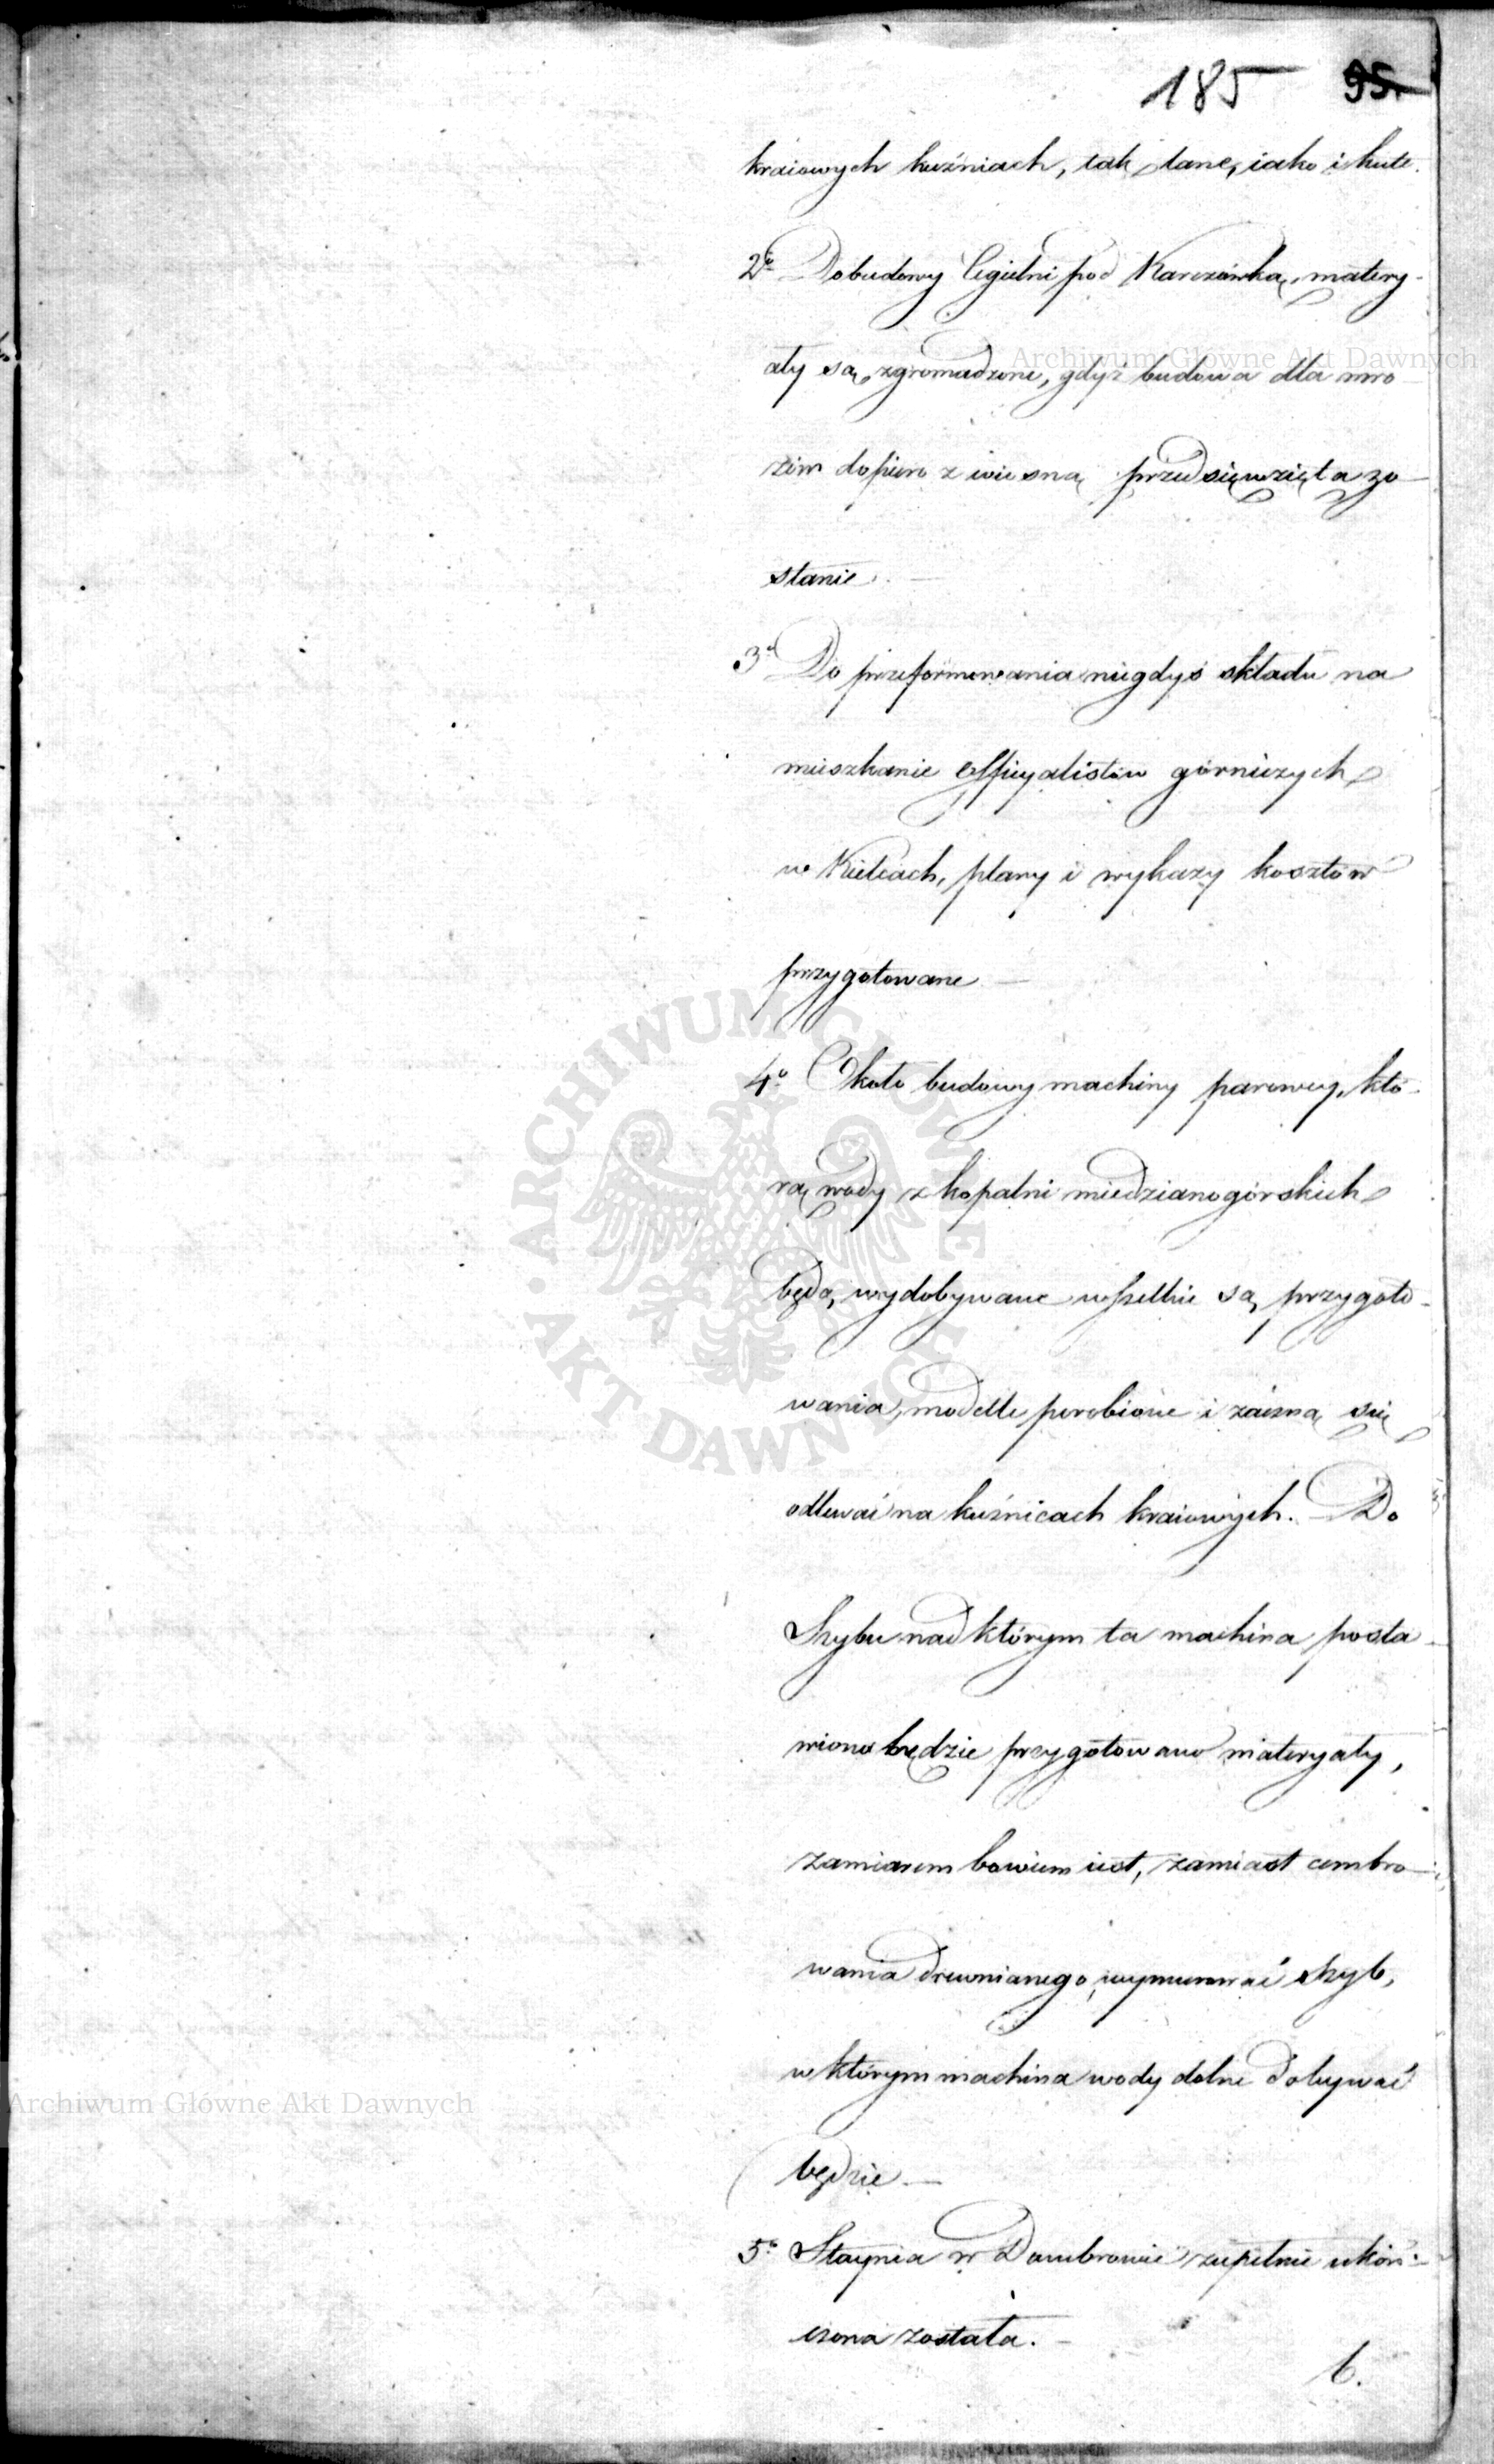 185 95.
kraiowych kuźniach, tak lane, iako i kute.
2o Do budowy Cegielni pod Karczówką, matery-
ały są zgromadzone, gdyż budowa dla mro
zów dopiero z wiosną przedsięwzięta zo-
stanie. —
3o Do przeformowania niegdyś składu na
mieszkanie officyalistów górniczych
w Kielcach, plany i wykazy kosztów
przygotowane —
4o Około budowy machiny parowey, któ-
rą wody z kopalni miedzianogórskich
będą wydobywane wszelkie są przygoto-
wania, modelle porobione i zaczną się
odlewać na kuźnicach kraiowych. Do
Szybu nad którym ta machina posta-
wiona będzie przygotowano materyały,
zamiarem bowiem iest, zamiast cembro-
wania drewnianego, wymurować szyb,
w którym machina wody dolne dobywać
będzie —
5o Staynia w Dombrowie zupełnie ukoń-
czona została. —
6.
Archiwum Główne Akt Dawnych
ARCHIWUM GŁÓWNE AKT DAWNYCH
Archiwum Główne Akt Dawnych